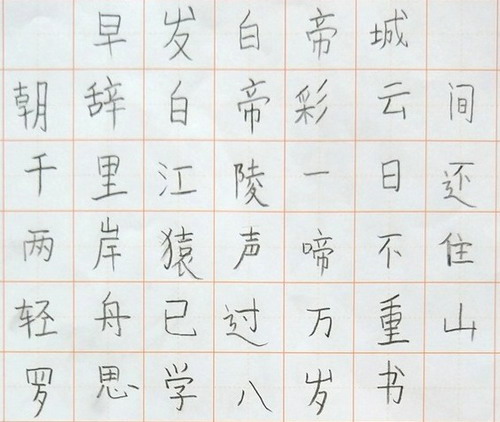 早发白帝城
朝辞白帝彩云间
千里江陵一日还
两岸猿声啼不住
轻舟已过万重山
罗思学八岁书